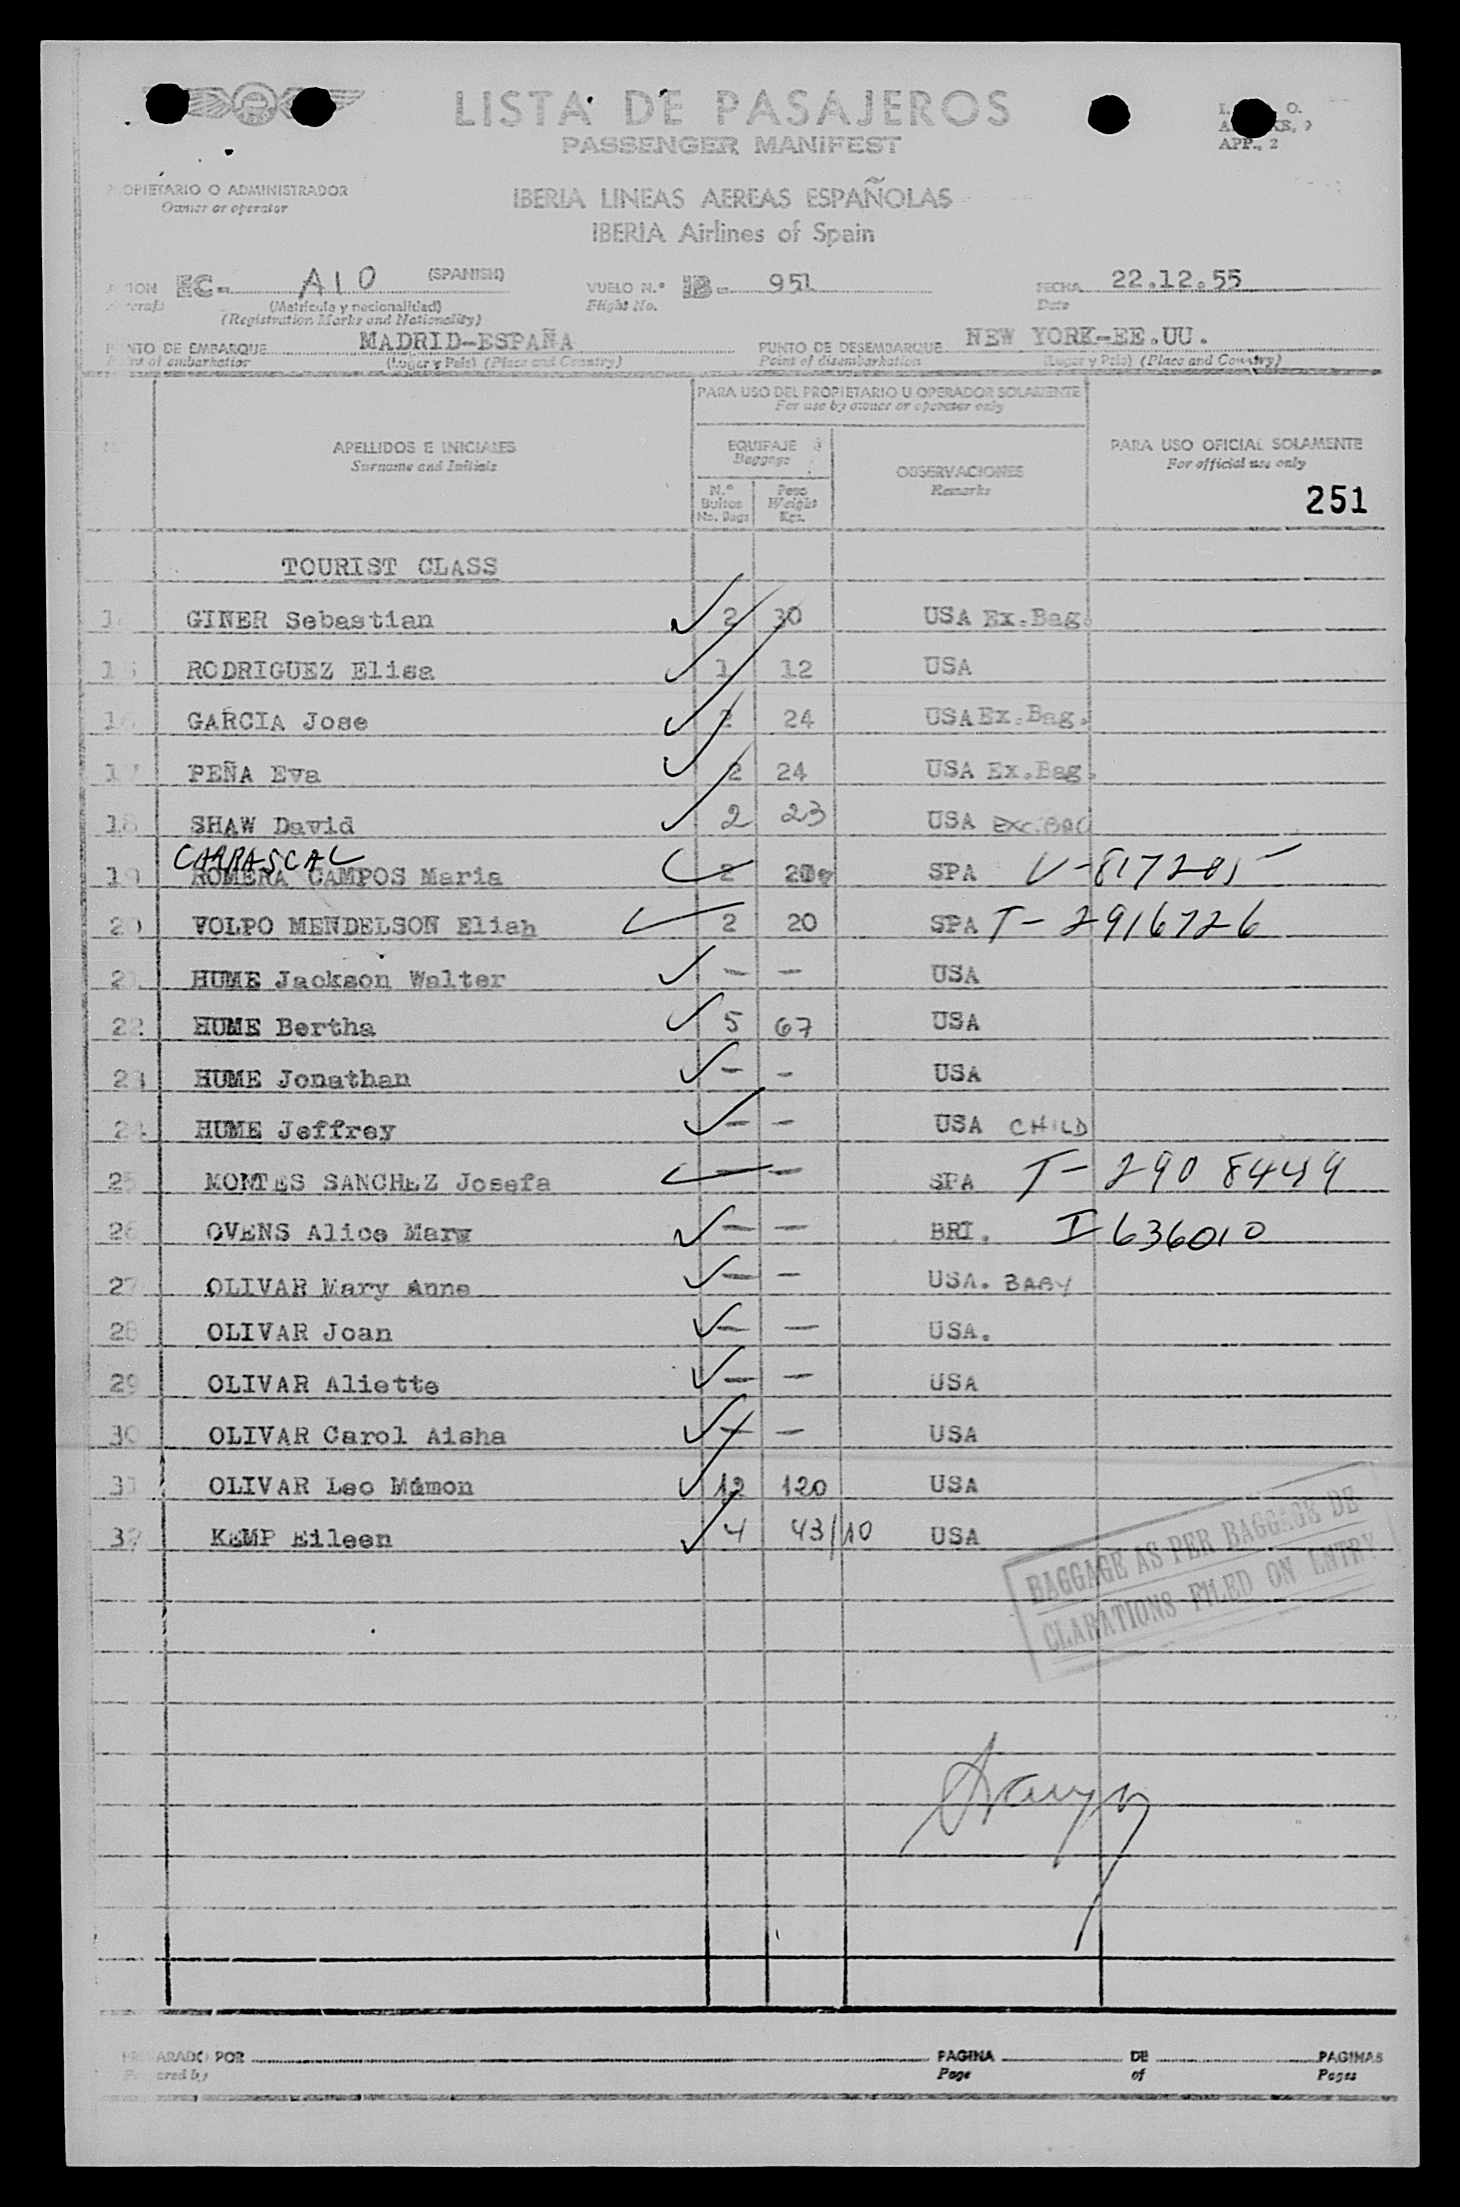 LISTA DE PASAJEROS
PASSENGER MANIFEST
APP., 2
OPIETARIO O ADMINISTRADOR
Owner or operator
IBERIA LINEAS AEREAS ESPAÑOLAS
IBERIA Airlines of Spain
EC- AIO (SPANISH) VUELO N.º IB- 951 FECHA 22.12.55
(Matrícula y nacionalidad) Flight No. Date
(Registration Marks and Nationality)
NTO DE EMBARQUE MADRID-ESPAÑA PUNTO DE DESEMBARQUE NEW YORK-EE.UU.
of embarkation (Lugar y País) (Place and Country) Point of disembarkation (Lugar y País) (Place and Country)
PARA USO DEL PROPIETARIO U OPERADOR SOLAMENTE
For use by owner or operator only
APELLIDOS E INICIALES
Surname and Initials
EQUIPAJE
Baggage
OBSERVACIONES
Remarks
PARA USO OFICIAL SOLAMENTE
For official use only
N.º Bultos
No. Bags
Peso
Weight
Kgs.
251
TOURIST CLASS
GINER Sebastian 2 30 USA Ex.Bag.
RODRIGUEZ Elisa 1 12 USA
GARCIA Jose 2 24 USA Ex.Bag.
17 PEÑA Eva 2 24 USA Ex.Bag.
18 SHAW David 2 23 USA EXC.BAG
CARRASCAL
19 ROMERA CAMPOS Maria 2 SPA V-817205
20 VOLPO MENDELSON Eliah 2 20 SPA T-2916726
21 HUME Jackson Walter - - USA
22 HUME Bertha 5 67 USA
23 HUME Jonathan - - USA
24 HUME Jeffrey - - USA CHILD
25 MONTES SANCHEZ Josefa - - SPA T-2908449
26 OVENS Alice Mary - - BRI. I-636010
27 OLIVAR Mary Anne - - USA. BABY
28 OLIVAR Joan - - USA.
29 OLIVAR Aliette - - USA
30 OLIVAR Carol Aisha - - USA
31 OLIVAR Leo Mámon 12 120 USA
32 KEMP Eileen 4 43/10 USA
BAGGAGE AS PER BAGGAGE DE
CLARATIONS FILED ON ENTRY
ARADO POR PAGINA DE PAGINAS
ared by Page of Pages